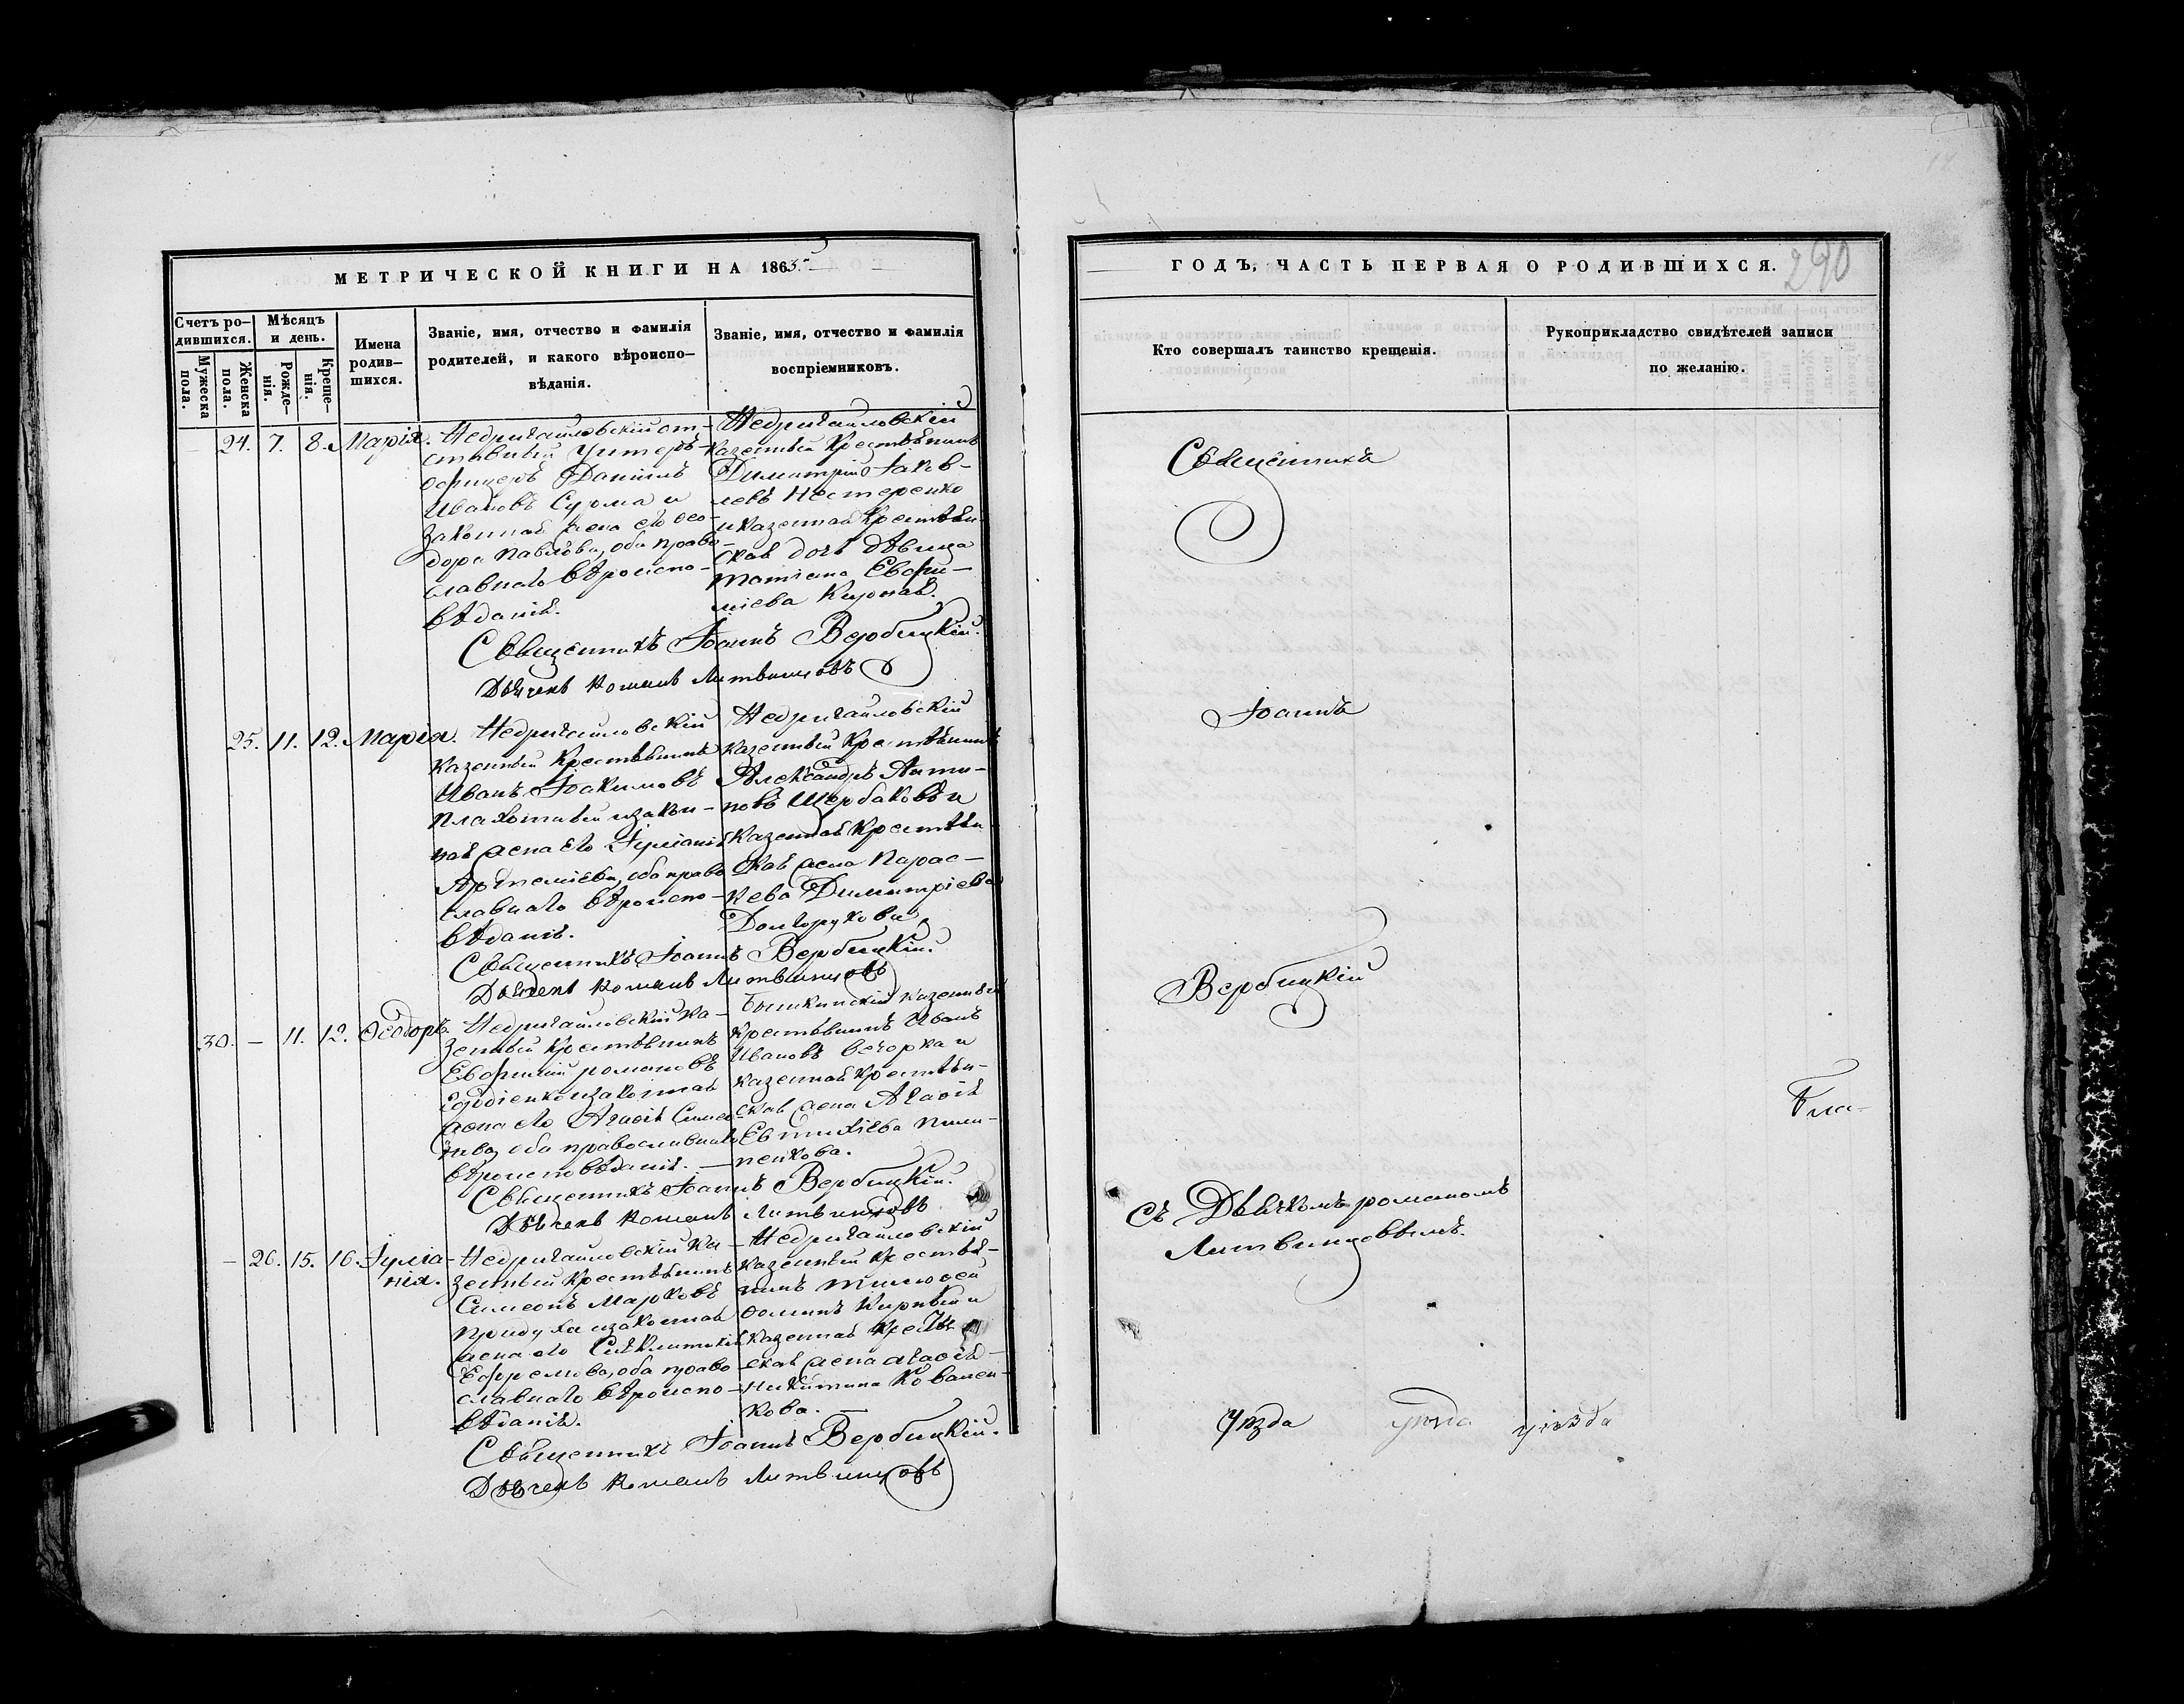 МЕТРИЧЕСКОЙ КНИГИ НА 1865.
Счетъ ро-
дившихся.
Мѣсяцъ
и день.
Мужеска
пола.
Женска
пола.
Рожде-
нія.
Креще-
нія.
Имена
родив-
шихся.
Званіе, имя, отчество и фамилія
родителей, и какого вѣроиспо-
вѣданія.
Званіе, имя, отчество и фамилія
воспріемниковъ.
24. 7. 8. Марія.
Недригайловскій от-
ставный Унтеръ-
офицеръ Даніилъ
Ивановъ Сурма и
законная жена его Ѳео-
дора Павлова, оба право-
славнаго вѣроиспо-
вѣданія.
Недригайловскій
казенный крестьянинъ
Димитрій Іаков-
левъ Нестеренко
и казенная крестьян-
ская дочь дѣвица
Татіана Евфи-
міева
Священникъ Іоаннъ Вербицкій.
Дьячекъ Романъ Литвинцовъ
25. 11. 12. Марія.
Недригайловскій
казенный крестьянинъ
Иванъ Іоакимовъ
Плахотный и закон-
ная жена его Іуліанія
Артеміева, оба право-
славнаго вѣроиспо-
вѣданія.
Недригайловскій
казенный крестьянинъ
Александръ Анти-
повъ Щербаковъ и
казенная крестьян-
ская жена Парас-
кева Димитріева
Долгорукова
Священникъ Іоаннъ Вербицкій.
Дьячекъ Романъ Литвинцовъ
30. — 11. 12. Ѳеодоръ.
Недригайловскій ка-
зенный крестьянинъ
Евфимій Романовъ
Гордіенко и законная
жена его Агаѳія Симео-
нова, оба православнаго
вѣроисповѣданія. —
казенный
крестьянинъ Иванъ
Ивановъ Вечорка и
казенная крестьян-
ская жена Агаѳія
Евтихіева Пили-
пенкова.
Священникъ Іоаннъ Вербицкій.
Дьячекъ Романъ Литвинцовъ
— 26. 15. 16. Іуліа-
нія.
Недригайловскій ка-
зенный крестьянинъ
Симеонъ Марковъ
Придуха и законная
жена его Сигклитикія
Ефремова, оба право-
славнаго вѣроиспо-
вѣданія.
Недригайловскій
казенный крестья-
нинъ Тимоѳей
Ѳоминъ Кирный и
казенная крестьян-
ская жена Агаѳія
Никитина Ковален-
кова. —
Священникъ Іоаннъ Вербицкій.
Дьячекъ Романъ Литвинцовъ
ГОДЪ, ЧАСТЬ ПЕРВАЯ О РОДИВШИХСЯ.
290
Кто совершалъ таинство крещенія.
Рукоприкладство свидѣтелей записи
по желанію.
Священникъ
Іоаннъ
Вербицкій
Съ Дьячкомъ Романомъ
Литвинцовымъ.
Бла-
уѣзда уѣзда уѣзда